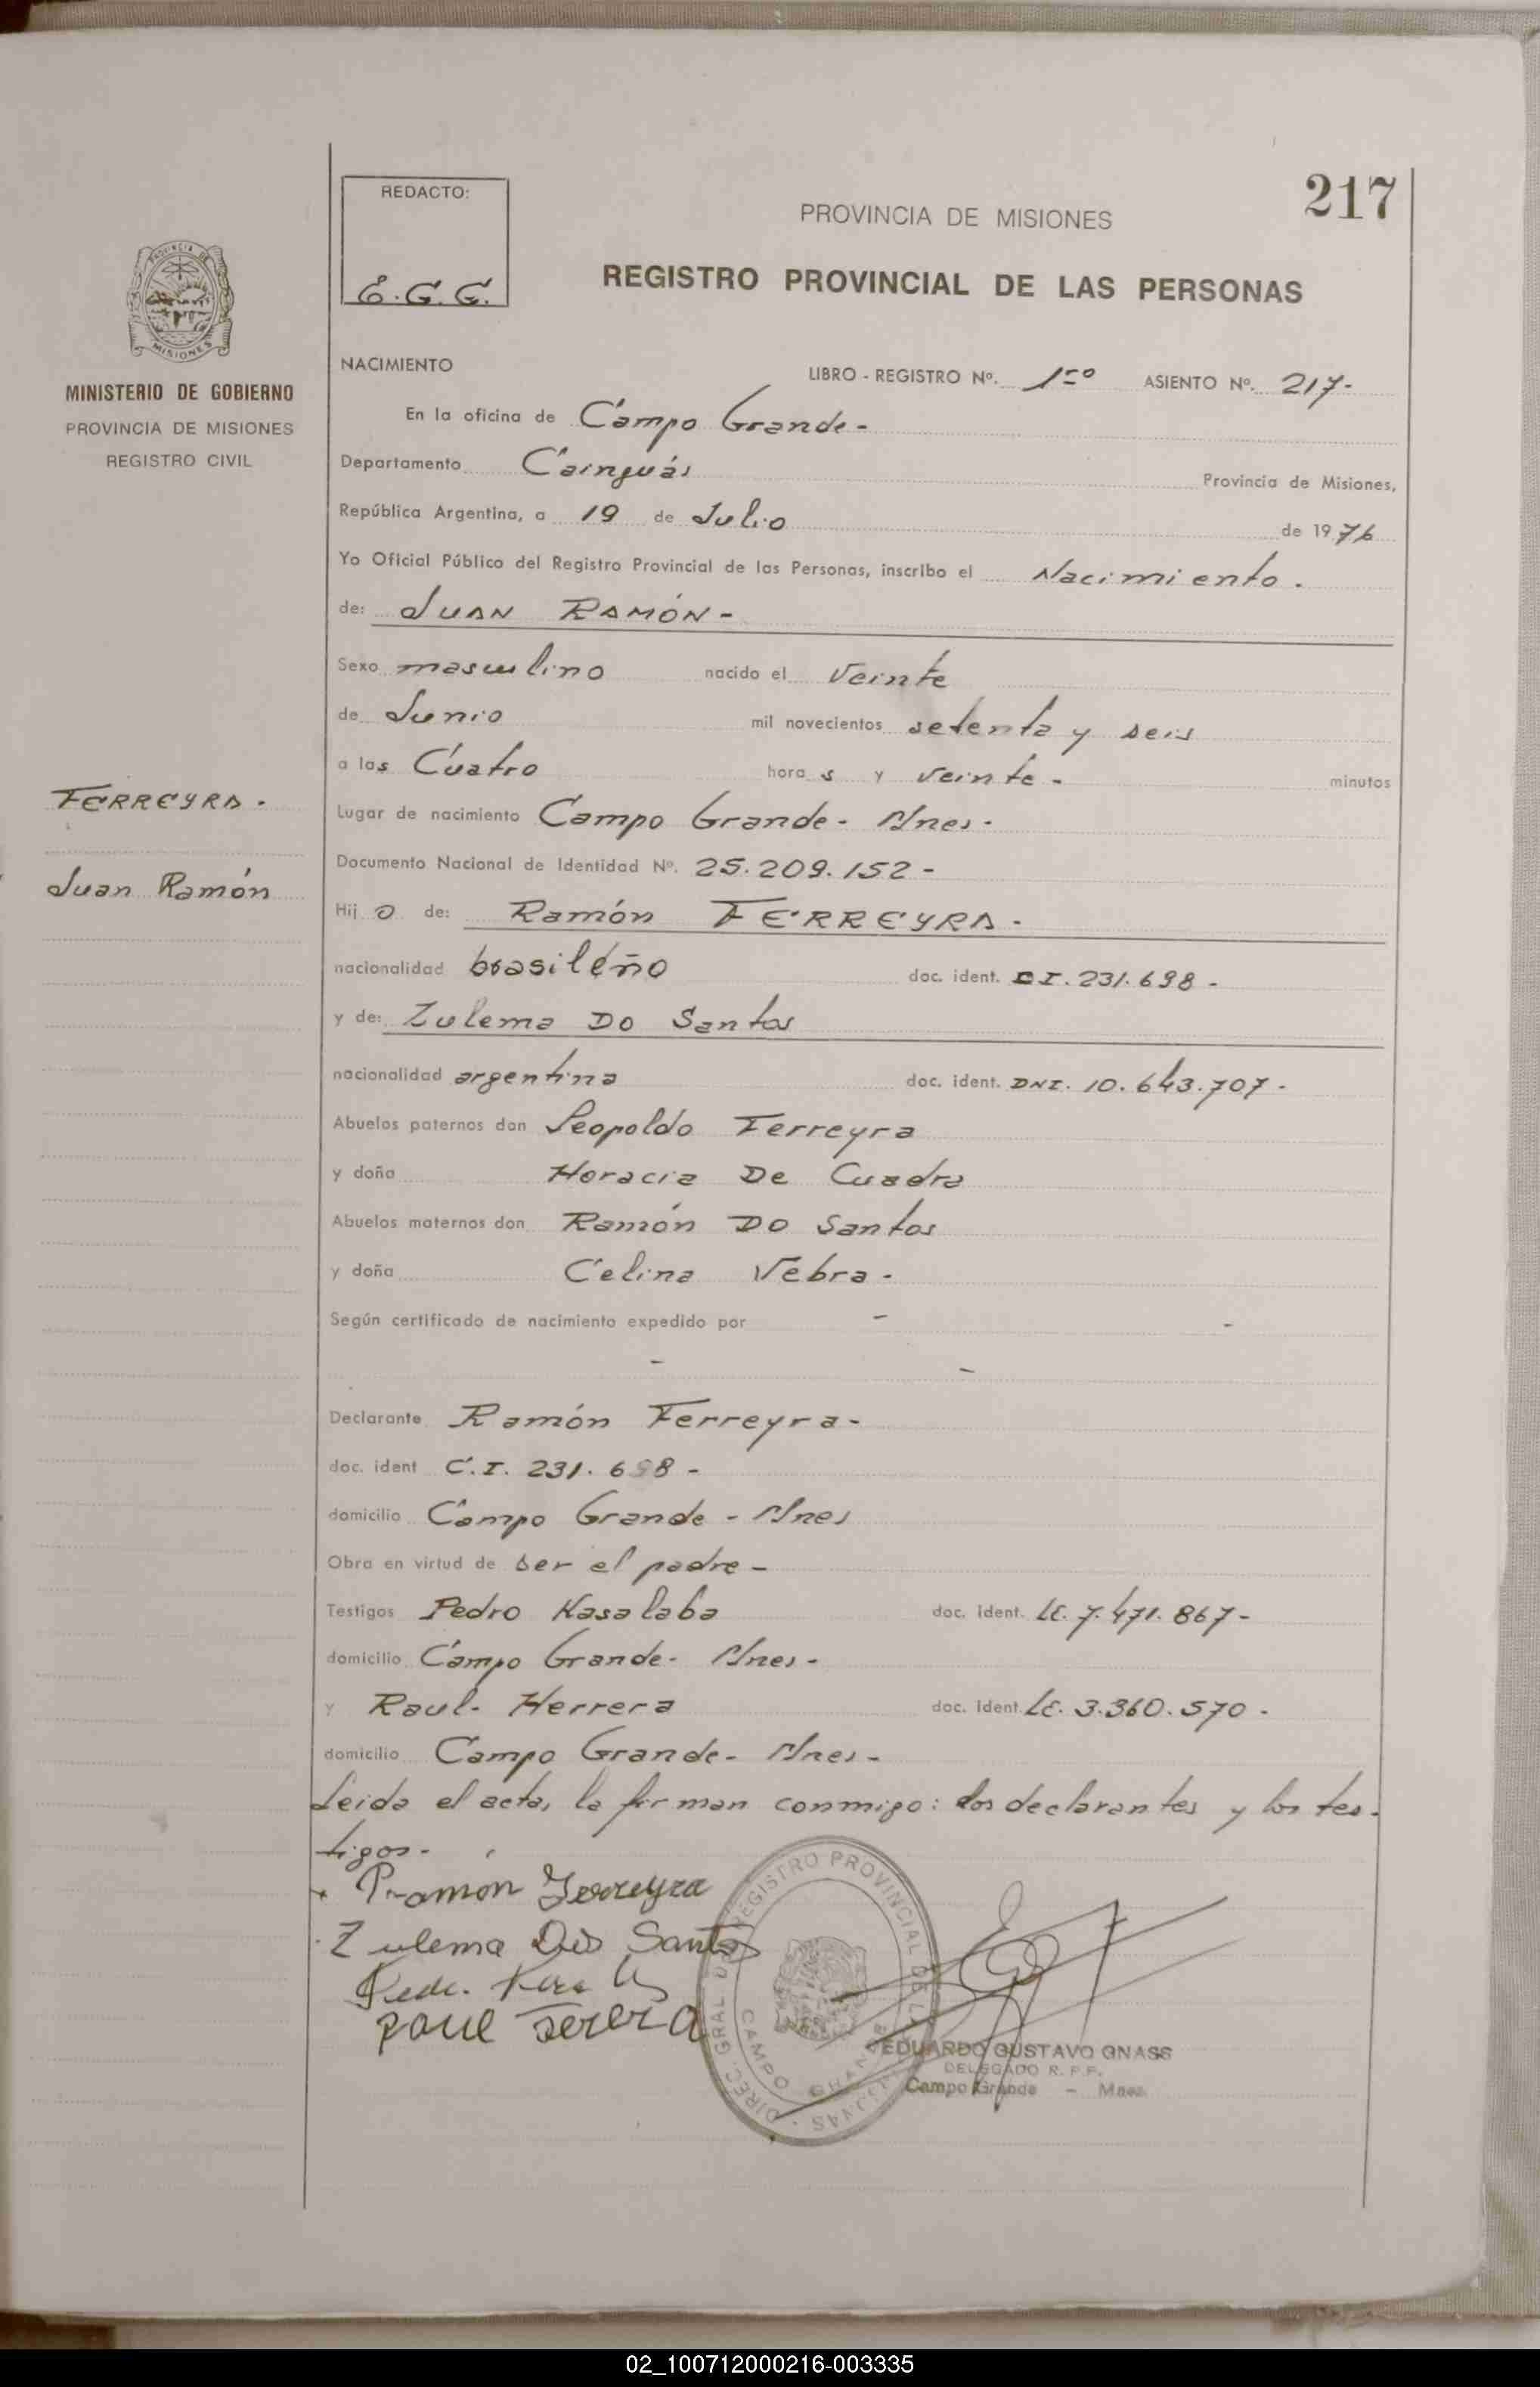 217
REDACTO:
E.G.G.
PROVINCIA DE MISIONES
REGISTRO PROVINCIAL DE LAS PERSONAS
PROVINCIA DE
MISIONES
MINISTERIO DE GOBIERNO
PROVINCIA DE MISIONES
REGISTRO CIVIL
NACIMIENTO LIBRO - REGISTRO Nº. 1ro ASIENTO Nº. 217-
En la oficina de Campo Grande-
Departamento Cainguás Provincia de Misiones,
República Argentina, a 19 de Julio de 1976
Yo Oficial Público del Registro Provincial de las Personas, inscribo el Nacimiento.
de: JUAN RAMÓN-
Sexo masculino nacido el Veinte
de Junio mil novecientos setenta y seis
a las Cuatro horas y veinte- minutos
FERREYRA.
Juan Ramón
Lugar de nacimiento Campo Grande- Mnes-
Documento Nacional de Identidad Nº. 25.209.152-
Hijo de: Ramón FERREYRA-
nacionalidad brasileño doc. ident. CI. 231.698-
y de: Zulema Do Santos
nacionalidad argentina doc. ident. DNI. 10.643.707-
Abuelos paternos don Leopoldo Ferreyra
y doña Horacia De Cuadra
Abuelos maternos don Ramón Do Santos
y doña Celina Vebra-
Según certificado de nacimiento expedido por - -
- -
Declarante Ramón Ferreyra-
doc. ident C.I. 231.698-
domicilio Campo Grande - Mnes
Obra en virtud de ser el padre-
Testigos Pedro Kasalaba doc. ident. LE. 7.471.867-
domicilio Campo Grande- Mnes-
y Raul- Herrera doc. ident. LE. 3.360.570-
domicilio Campo Grande- Mnes-
Leida el acta, la firman conmigo: los declarantes y los tes-
tigos-
Ramon Ferreyra
Zulema Dos Santos
DIREC. GRAL. DEL REGISTRO PROVINCIAL DE LAS PERSONAS
CAMPO GRANDE
EDUARDO GUSTAVO GNASS
DELEGADO R. P. P.
Campo Grande - Mnes.
02_100712000216-003335